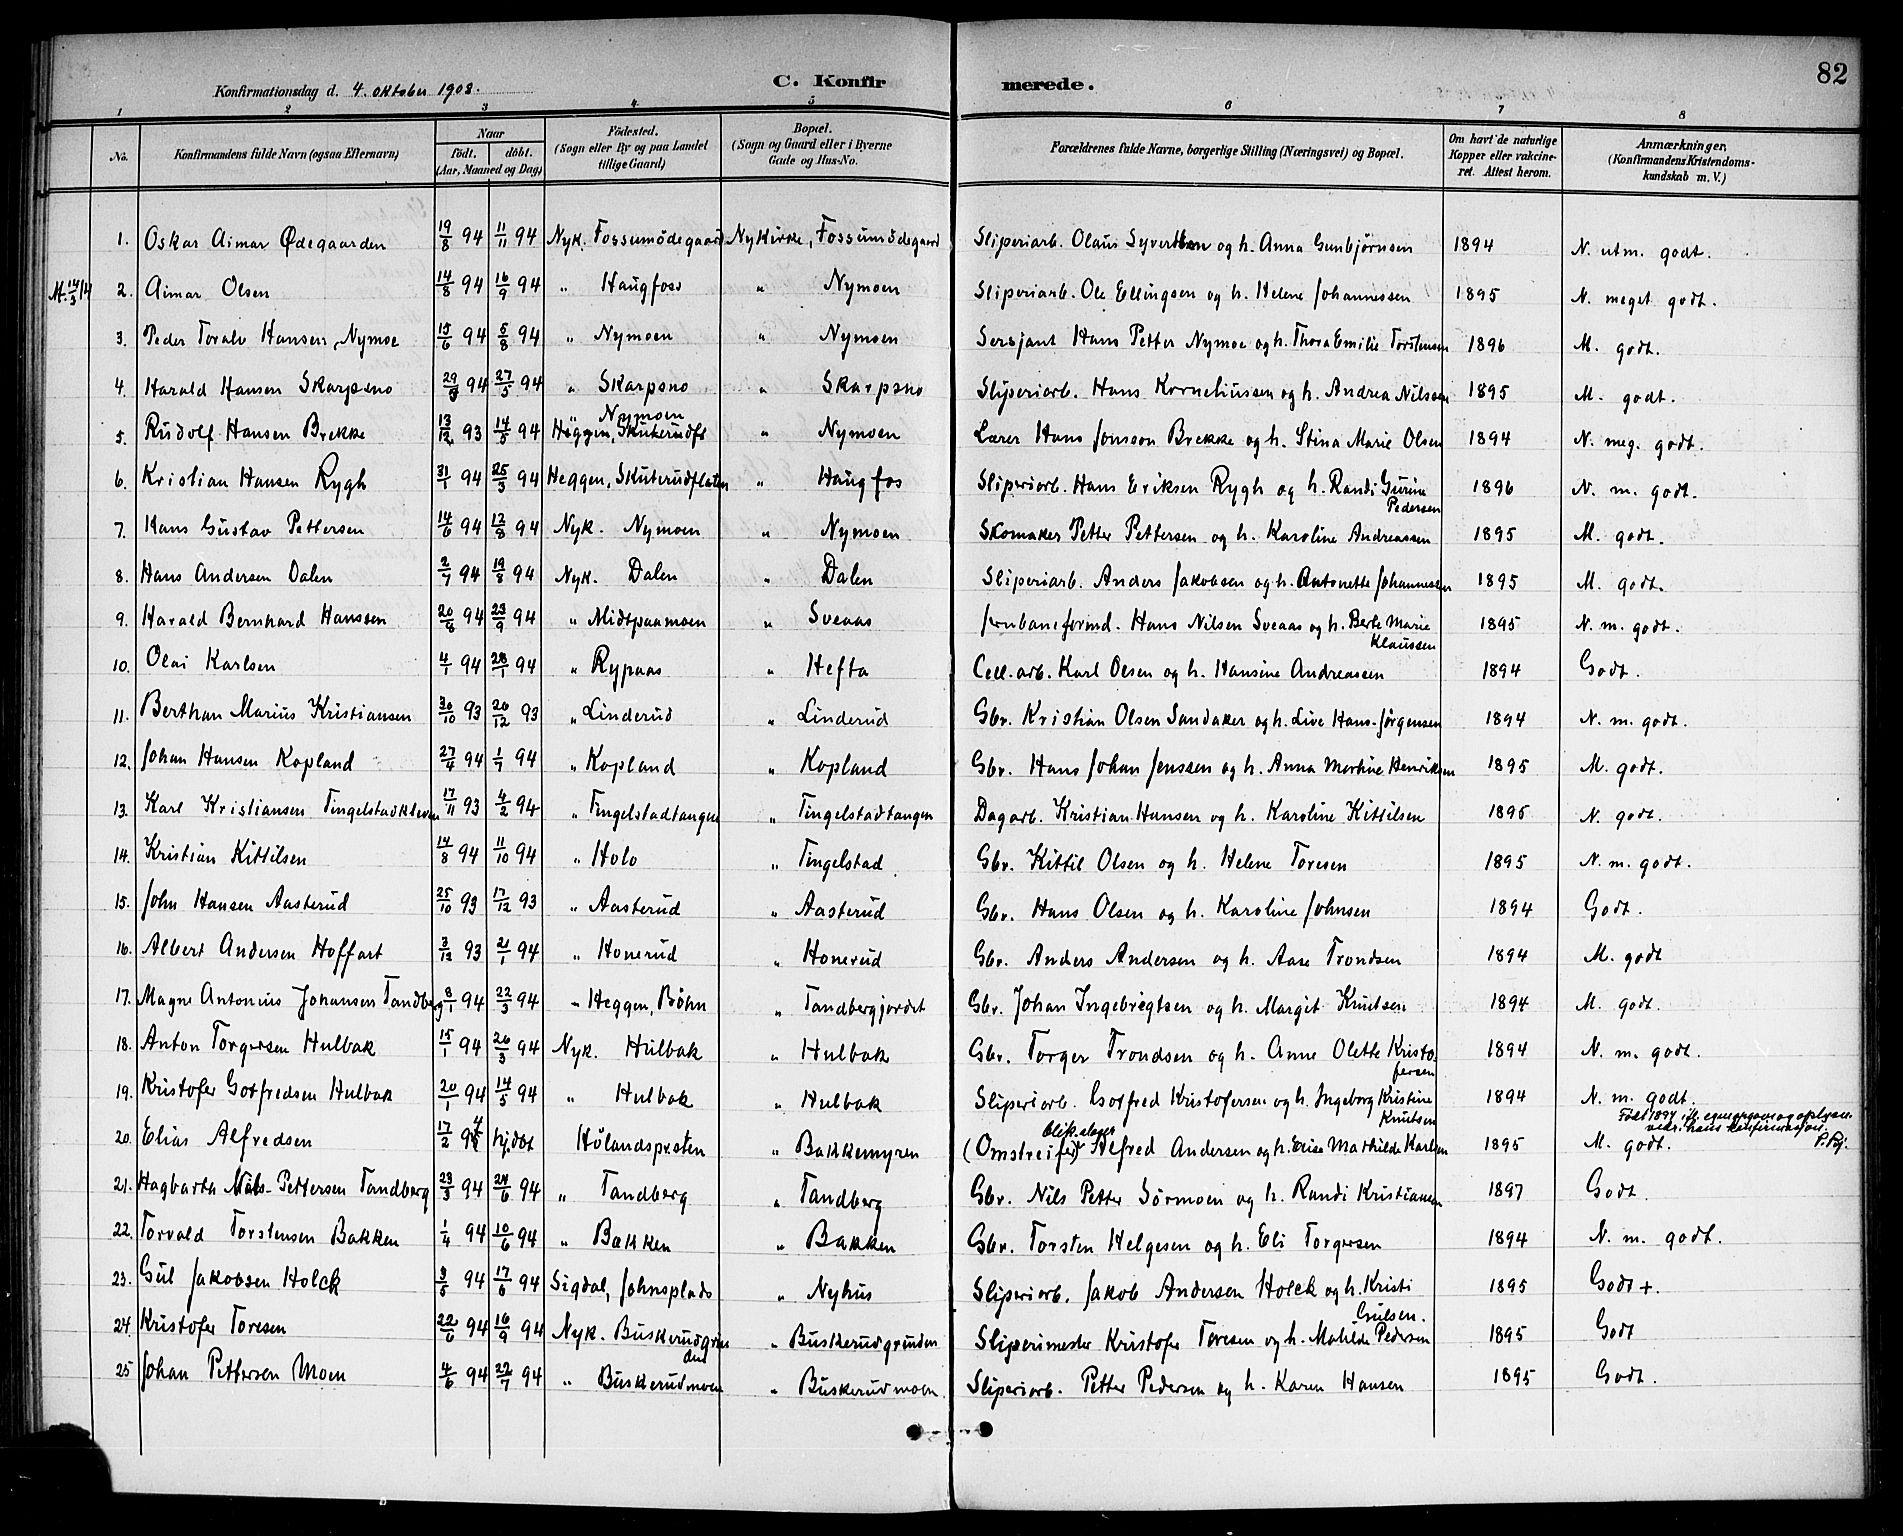 Konfirmationsdag d. 4. oktober 1908.
C. Konfir merede. 82
1 2 3 4 5 6 7 8
No. Konfirmandens fulde Navn (ogsaa Efternavn) Naar födt. döbt. (Aar, Maaned og Dag) Födested. (Sogn eller By og paa Landet tillige Gaard) Bopæl. (Sogn og Gaard eller i Byerne Gade og Hus-No. Forældrenes fulde Navne, borgerlige Stilling (Næringsvei) og Bopæl. Om havt de naturlige Kopper eller vakcineret. Attest herom. Anmærkninger, (Konfirmandens Kristendomskundskab m. V.)
1. Oskar Aimar Ødegaarden 19/8 94 11/11 94 Nyk. Fossumödegaard Nykirke, Fossumödegaard Sliperiarb. Olaus Syvertsen og h. Anna Gunbjørnsen 1894 N. utm. godt.
2. Aimar Olsen 14/8 94 16/9 94 " Haugfoss " Nymoen Sliperiarb. Ole Ellingsen og h. Helene Johannessen 1895 N. meget godt.
3. Peder Toralv Hansen Nymoe 15/6 94 5/8 94 " Nymoen " Nymoen Sersjant Hans Petter Nymoe og h. Thora Emilie Torstensen 1896 M. godt.
4. Harald Hansen Skarpsno 29/3 94 27/5 94 " Skarpsno " Skarpsno Sliperiarb. Hans Korneliussen og h. Andrea Nilssen 1895 M. godt.
5. Rudolf Hansen Brekke 13/12 93 14/5 94 " Nymoen Heggen, Skuterudfl " Nymoen Lærer Hans Jonsson Brekke og h. Stina Marie Olsen 1894 N. meg. godt.
6. Kristian Hansen Rygh 31/1 94 25/3 94 Heggen, Skuterudflaten " Haugfos Sliperiarb. Hans Eriksen Rygh og h. Randi Gurine Pedersen 1896 N. m. godt.
7. Hans Gustav Pettersen 14/6 94 12/8 94 Nyk. Nymoen " Nymoen Skomaker Petter Pettersen og h. Karoline Andreassen 1895 M. godt.
8. Hans Andersen Dalen 2/7 94 19/8 94 Nyk. Dalen " Dalen Sliperiarb. Anders Jakobsen og h. Antonette Johannessen 1895 M. godt.
9. Harald Bernhard Hanssen 20/8 94 23/9 94 " Midtpaamoen " Sveaas Jernbaneformd. Hans Nilsen Sveaas og h. Berte Marie Klaussen 1895 N. m. godt.
10. Olai Karlsen 4/1 94 28/1 94 " Rypaas " Hefta Cell. arb. Karl Olsen og h. Hansine Andreassen 1894 Godt.
11. Berthan Marius Kristiansen 30/10 93 20/12 93 " Linderud " Linderud Gbr. Kristian Olsen Sandaker og h. Live Hans-Jørgensen 1894 N. m. godt.
12. Johan Hansen Kopland 27/4 94 1/7 94 " Kopland " Kopland Gbr. Hans Johan Jenssen og h. Anna Martine Henriksen 1895 M. godt.
13. Karl Kristiansen Tingelstadkleven 17/11 93 4/2 94 " Tingelstadtangen " Tingelstadtangen Dagarb. Kristian Hansen og h. Karoline Kittilsen 1895 N. godt.
14. Kristian Kittilsen 14/8 94 11/10 94 " Holo " Tingelstad Gbr. Kittil Olsen og h. Helene Toresen 1895 N. m. godt.
15. John Hansen Aasterud 25/10 93 17/12 93 " Aasterud " Aasterud Gbr. Hans Olsen og h. Karoline Johnsen 1894 Godt.
16. Albert Andersen Hoffart 3/12 93 21/1 94 " Honerud " Honerud Gbr. Anders Andersen og h. Aase Trondsen 1894 M. godt
17. Magne Antonius Johansen Tandberg 8/1 94 22/3 94 " Heggen, Böhn " Tandbergjordet Gbr. Johan Ingebregtsen og h. Margit Knutsen 1894 M. godt.
18. Anton Torgersen Hulbak 15/1 94 26/3 94 Nyk. Hulbak " Hulbak Gbr. Torger Trondsen og h. Anne Olette Kristofersen 1894 N. m. godt.
19. Kristofer Gotfredsen Hulbak 20/1 94 14/5 94 " Hulbak " Hulbak Sliperiarb. Gotfred Kristofersen og h. Ingeborg Kristine Knutsen 1894 N. m. godt.
20. Elias Alfredsen 17/2 94 hj.døt Hölandsprsten " Bakkemyren (Omstreifer) blikslager Alfred Andersen og h. Elise Mathilde Karlsen 1895 M. godt.
21. Hagbarth Nils-Pettersen Tandberg 23/3 94 24/6 94 " Tandberg " Tandberg Gbr. Nils Petter Sörmoen og h. Randi Kristiansen 1897 Godt.
22. Torvald Torstensen Bakken 1/4 94 10/6 94 " Bakken " Bakken Gbr. Torsten Helgesen og h. Eli Torgersen 1894 N. m. godt.
23. Gul Jakobsen Holck 3/5 94 17/6 94 Sigdal, Johnsplads " Nyhus Sliperiarb. Jakob Andersen Holck og h. Kristi Gulsen. 1895 Godt +.
24. Kristofer Toresen 22/6 94 16/9 94 Nyk. Buskerudgrunden " Buskerudgrunden Sliperimester Kristofer Toresen og h. Matilde Pedersen 1895 Godt
25 Johan Pettersen Moen 4/6 94 22/7 94 " Buskerudmoen " Buskerudmoen. Sliperiarb. Petter Pedersen og h. Karen Hansen 1895 Godt.